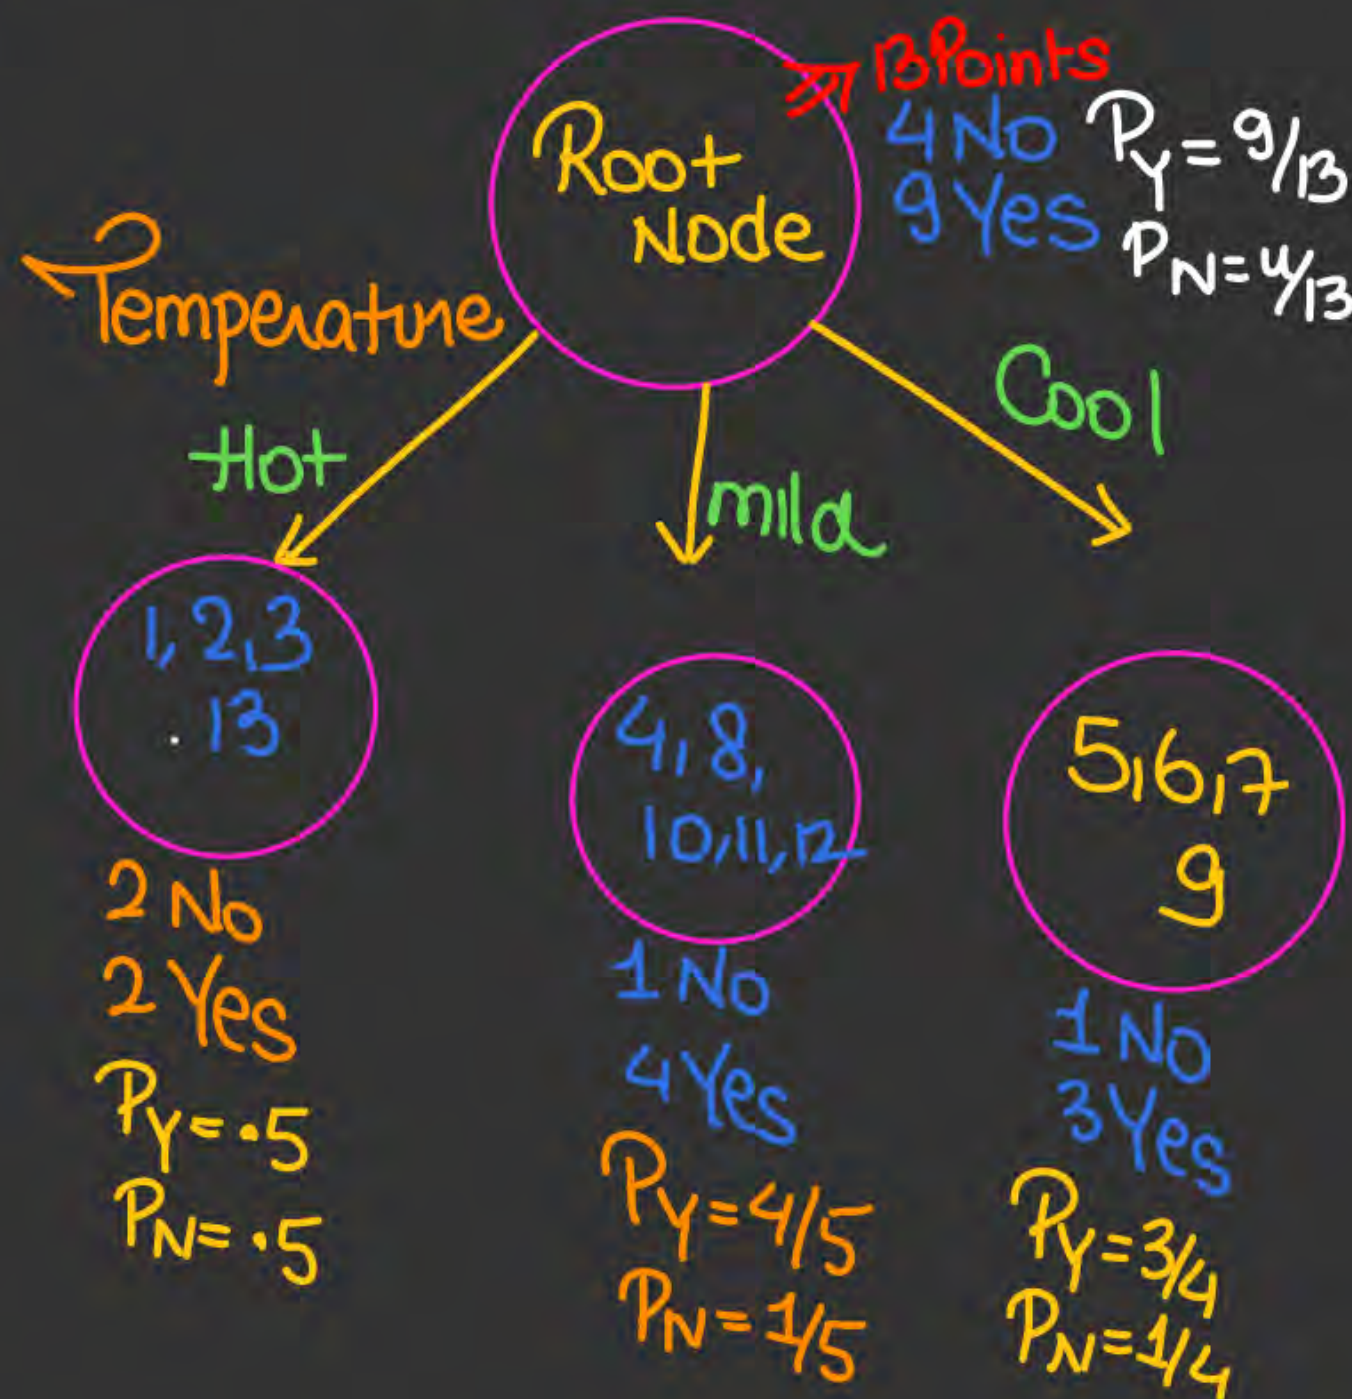 13 Points
4 No
9 Yes
P_Y = 9/13
P_N = 4/13
Root
Node
Temperature
Hot
mild
Cool
1, 2, 3
. 13
2 No
2 Yes
P_Y = .5
P_N = .5
4, 8,
10, 11, 12
1 No
4 Yes
P_Y = 4/5
P_N = 1/5
5, 6, 7
9
1 No
3 Yes
P_Y = 3/4
P_N = 1/4